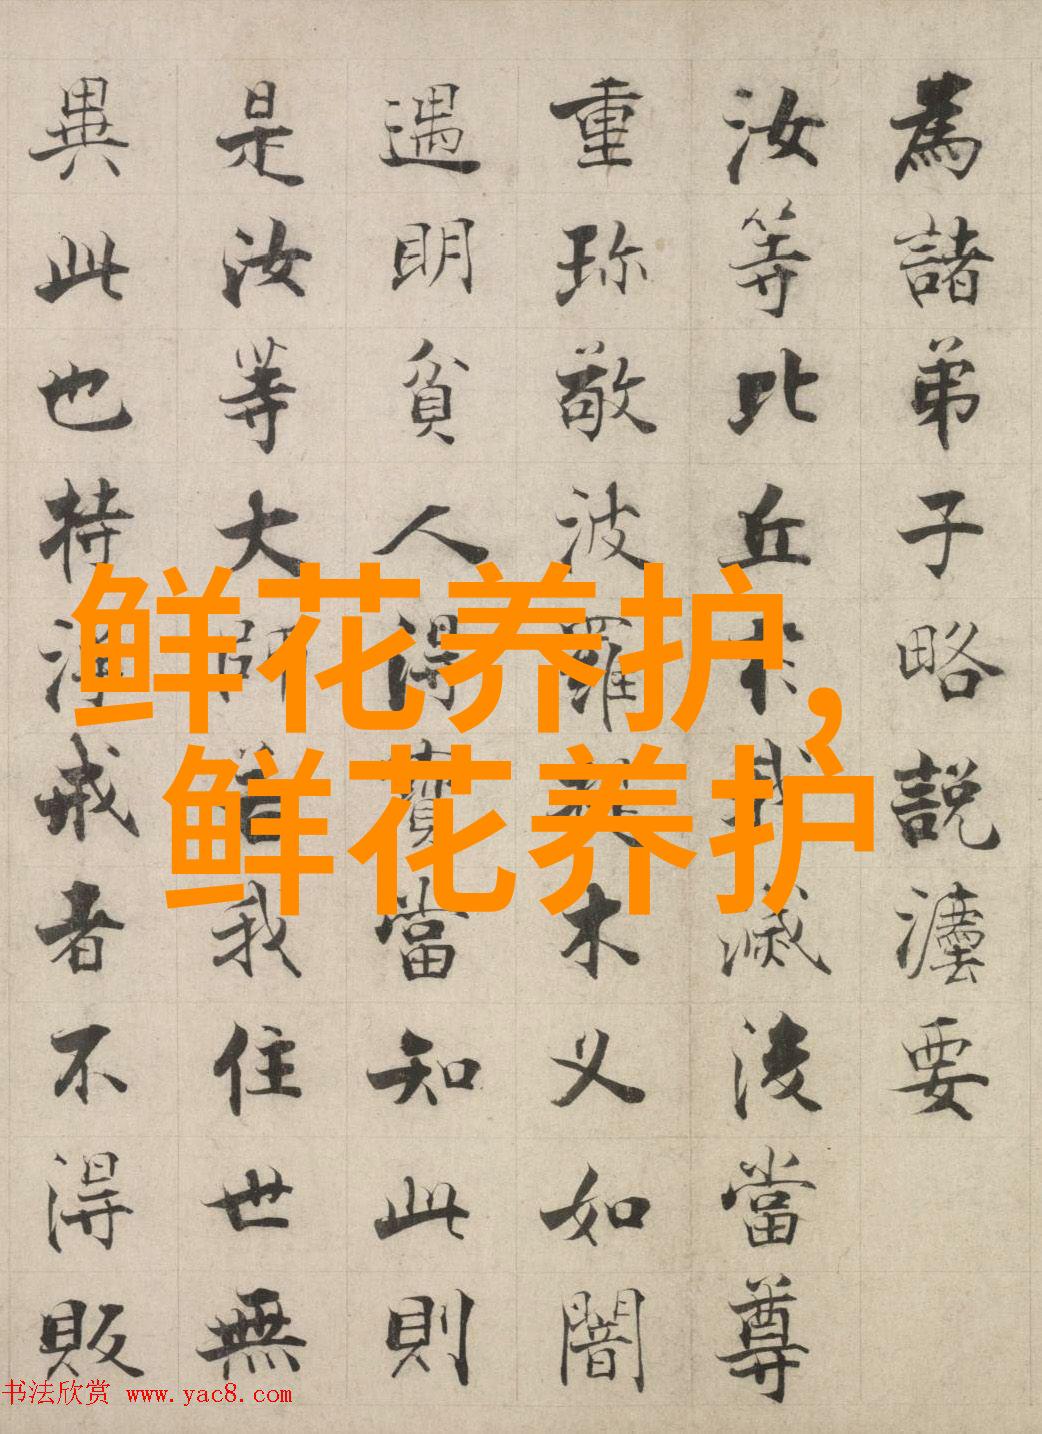 為諸弟子略説灋要
汝等比丘我滅後當尊
重珎敬波羅木叉如闇
遇明貧人得寳當知此則
是汝等大師若我住世無
異此也持淨戒者不得販
鲜花养护，
鲜花养护
书法欣赏 www.yac8.com